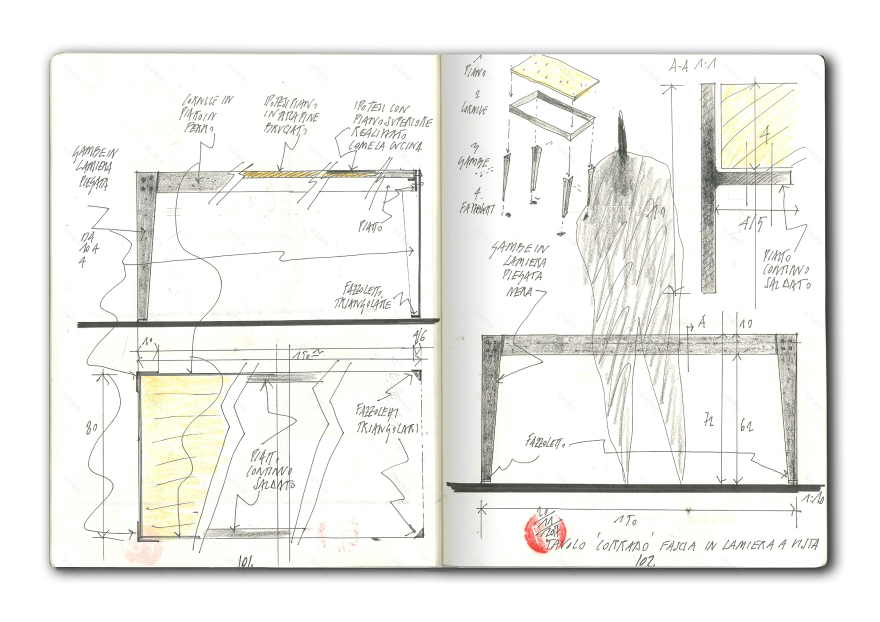 CORNICE IN
PIATTO IN
FERRO
IPOTESI PIANO
IN ABRAPINE
BRUCIATO
IPOTESI CON
PIANO SUPERIORE
REALIZZATO
COME LA CUCINA
GAMBE IN
LAMIERA
PIEGATA
DA
10 A
4
PIATTO
FAZZOLETTO
TRIANGOLARE
10
4/6
150
80
FAZZOLETTI
TRIANGOLARI
PIATTO
CONTINUO
SALDATO
101.
1
PIANO
2
CORNICE
3
GAMBE
4.
FAZZOLETTI
A-A 1:1
4
4/5
PIATTO
CONTINUO
SALDATO
GAMBE IN
LAMIERA
PIEGATA
NERA
A
10
72
62
FAZZOLETTO
1:10
150
20
11
TAVOLO 'CORRADO' FASCIA IN LAMIERA A VISTA
102.